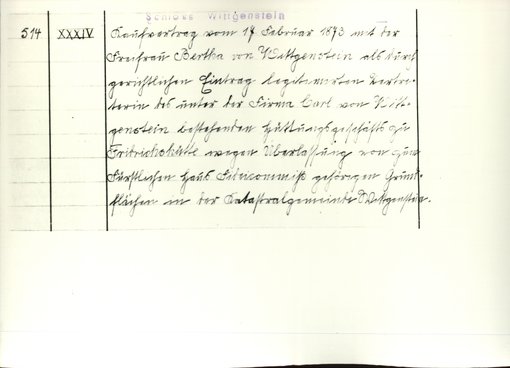 Schloss Wittgenstein
514 XXXIV Kaufvertrag vom 17 Februar 1873 mit der
Freifrau Bertha von Wittgenstein als durch
gerichtlichen Eintrag legitimirten Vertre-
terin des unter der Firma Carl von Witt-
genstein bestehenden Hüttungsgeschäfts zu
Fridrichshütte wegen Überlassung von zum
Fürstlichen Haus Fideicommiß gehörigen Grund-
flächen in der Katastralgemeinde Wittgenstein.